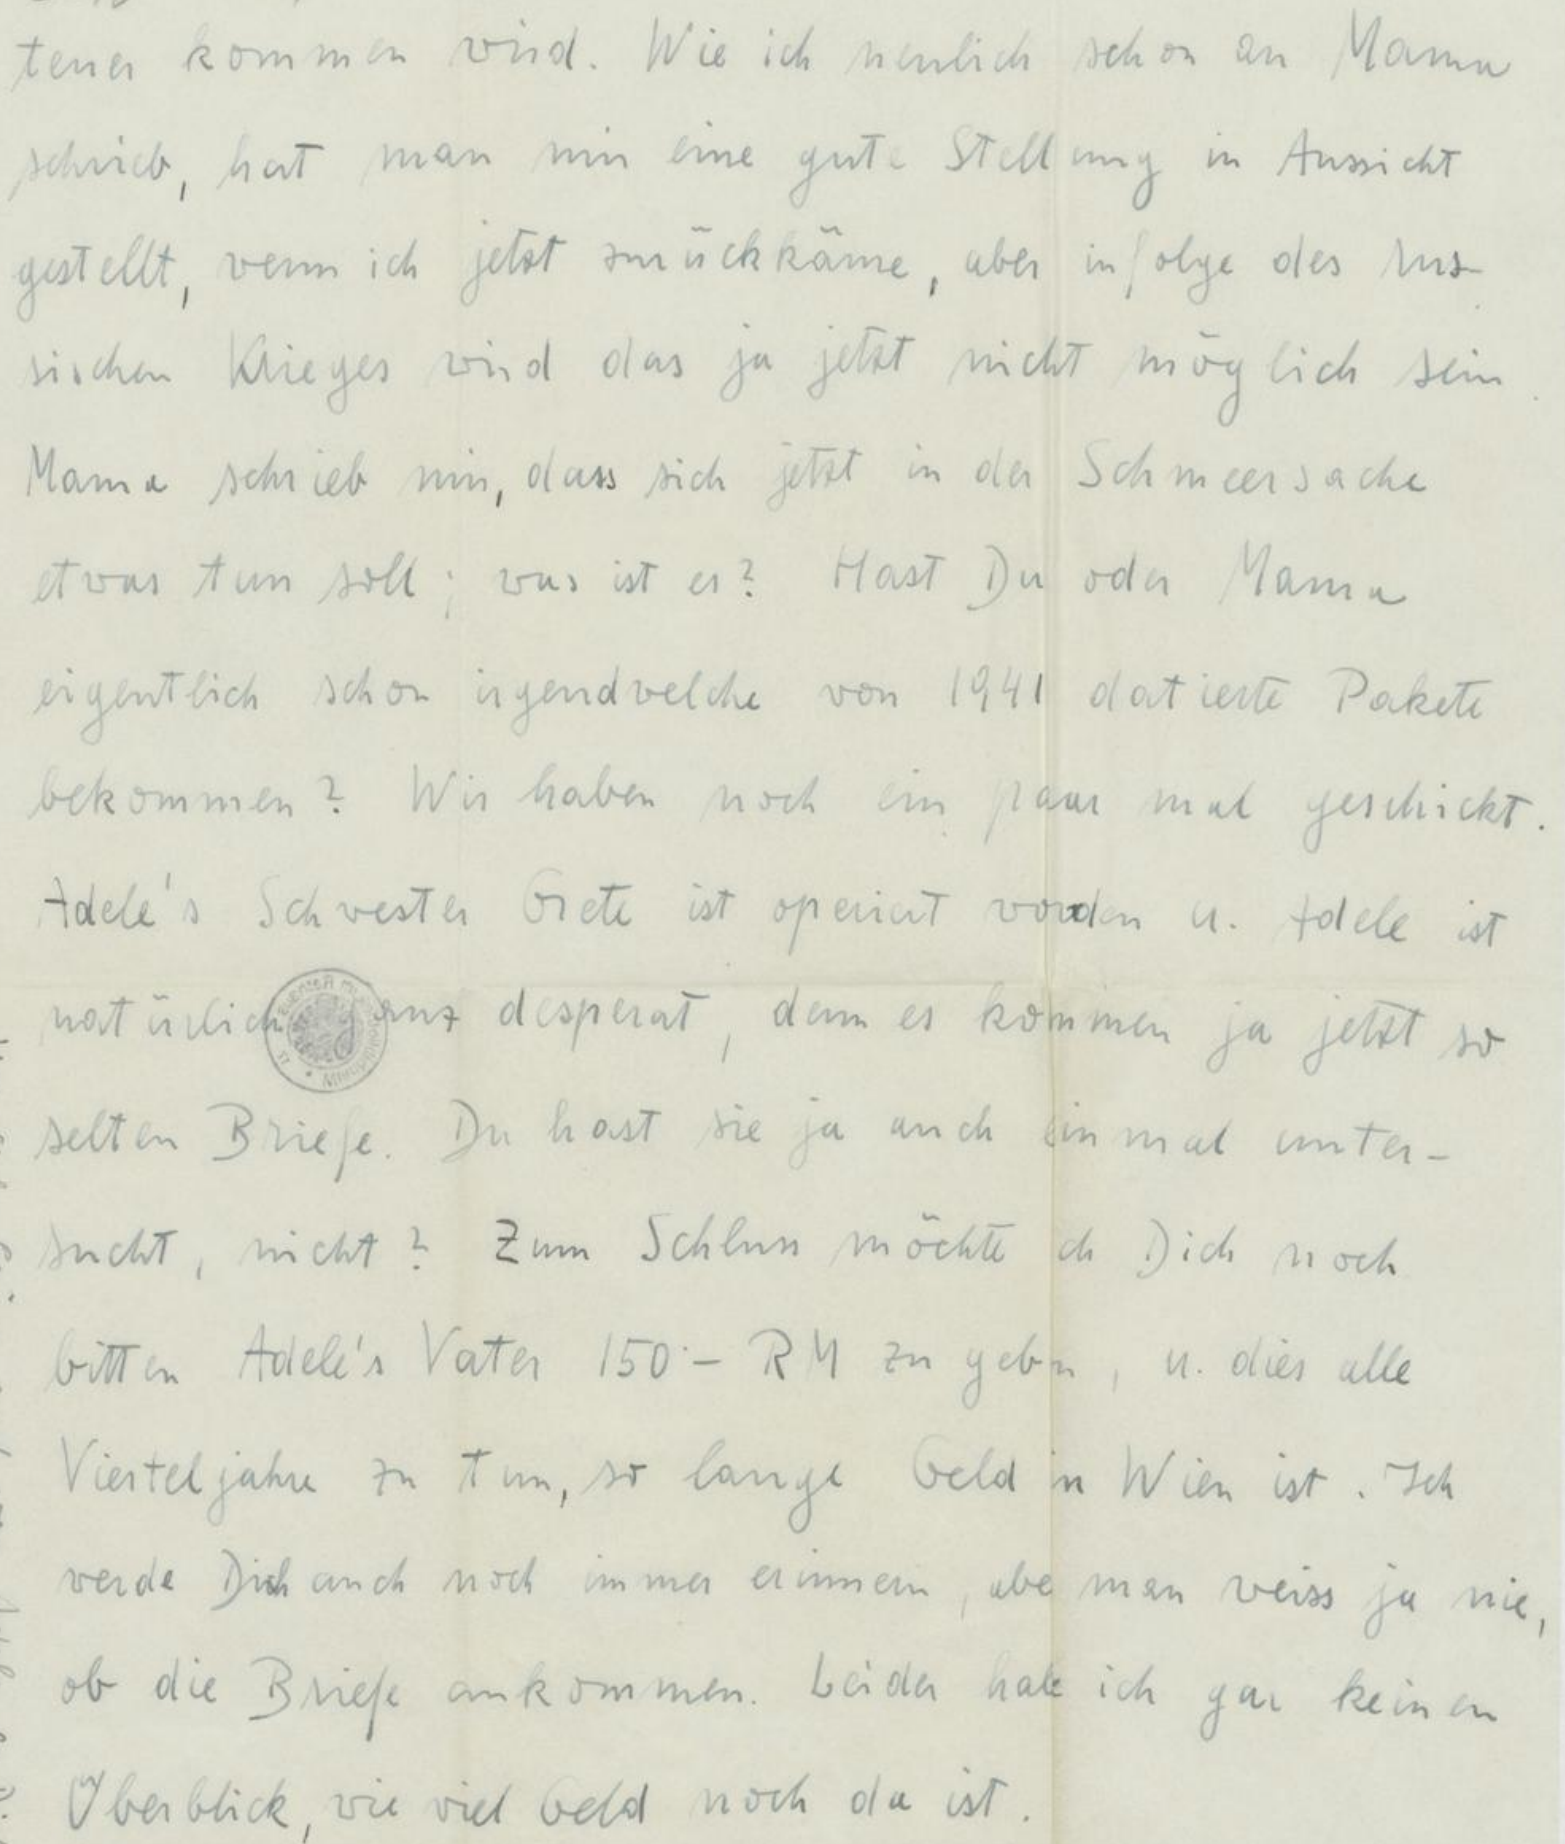 tener kommen wird. Wie ich neulich schon an Mama
schrieb, hat man mir eine gute Stellung in Aussicht
gestellt, wenn ich jetzt zurückkäme, aber infolge des rus-
sischen Krieges wird das ja jetzt nicht möglich sein.
Mama schrieb mir, dass sich jetzt in der Schmeersache
etwas tun soll; was ist es? Hast Du oder Mama
eigentlich schon irgendwelche von 1941 datierte Pakete
bekommen? Wir haben noch ein paar mal geschickt.
Adele's Schwester Grete ist operiert worden u. Adele ist
natürlich ganz desperat, denn es kommen ja jetzt so
selten Briefe. Du hast sie ja auch einmal unter-
sucht, nicht? Zum Schluss möchte ich Dich noch
bitten Adele's Vater 150·– RM zu geben, u. dies alle
Vierteljahre zu tun, so lange Geld in Wien ist. Ich
werde Dich auch noch immer erinnern, aber man weiss ja nie,
ob die Briefe ankommen. Leider habe ich gar keinen
Überblick, wie viel Geld noch da ist.